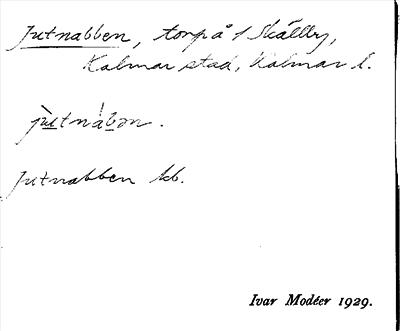 Jutnabben, torp å / Skälby,
Kalmar stad, Kalmar l.
jùtnábən.
Jutnabben kb.
Ivar Modéer 1929.